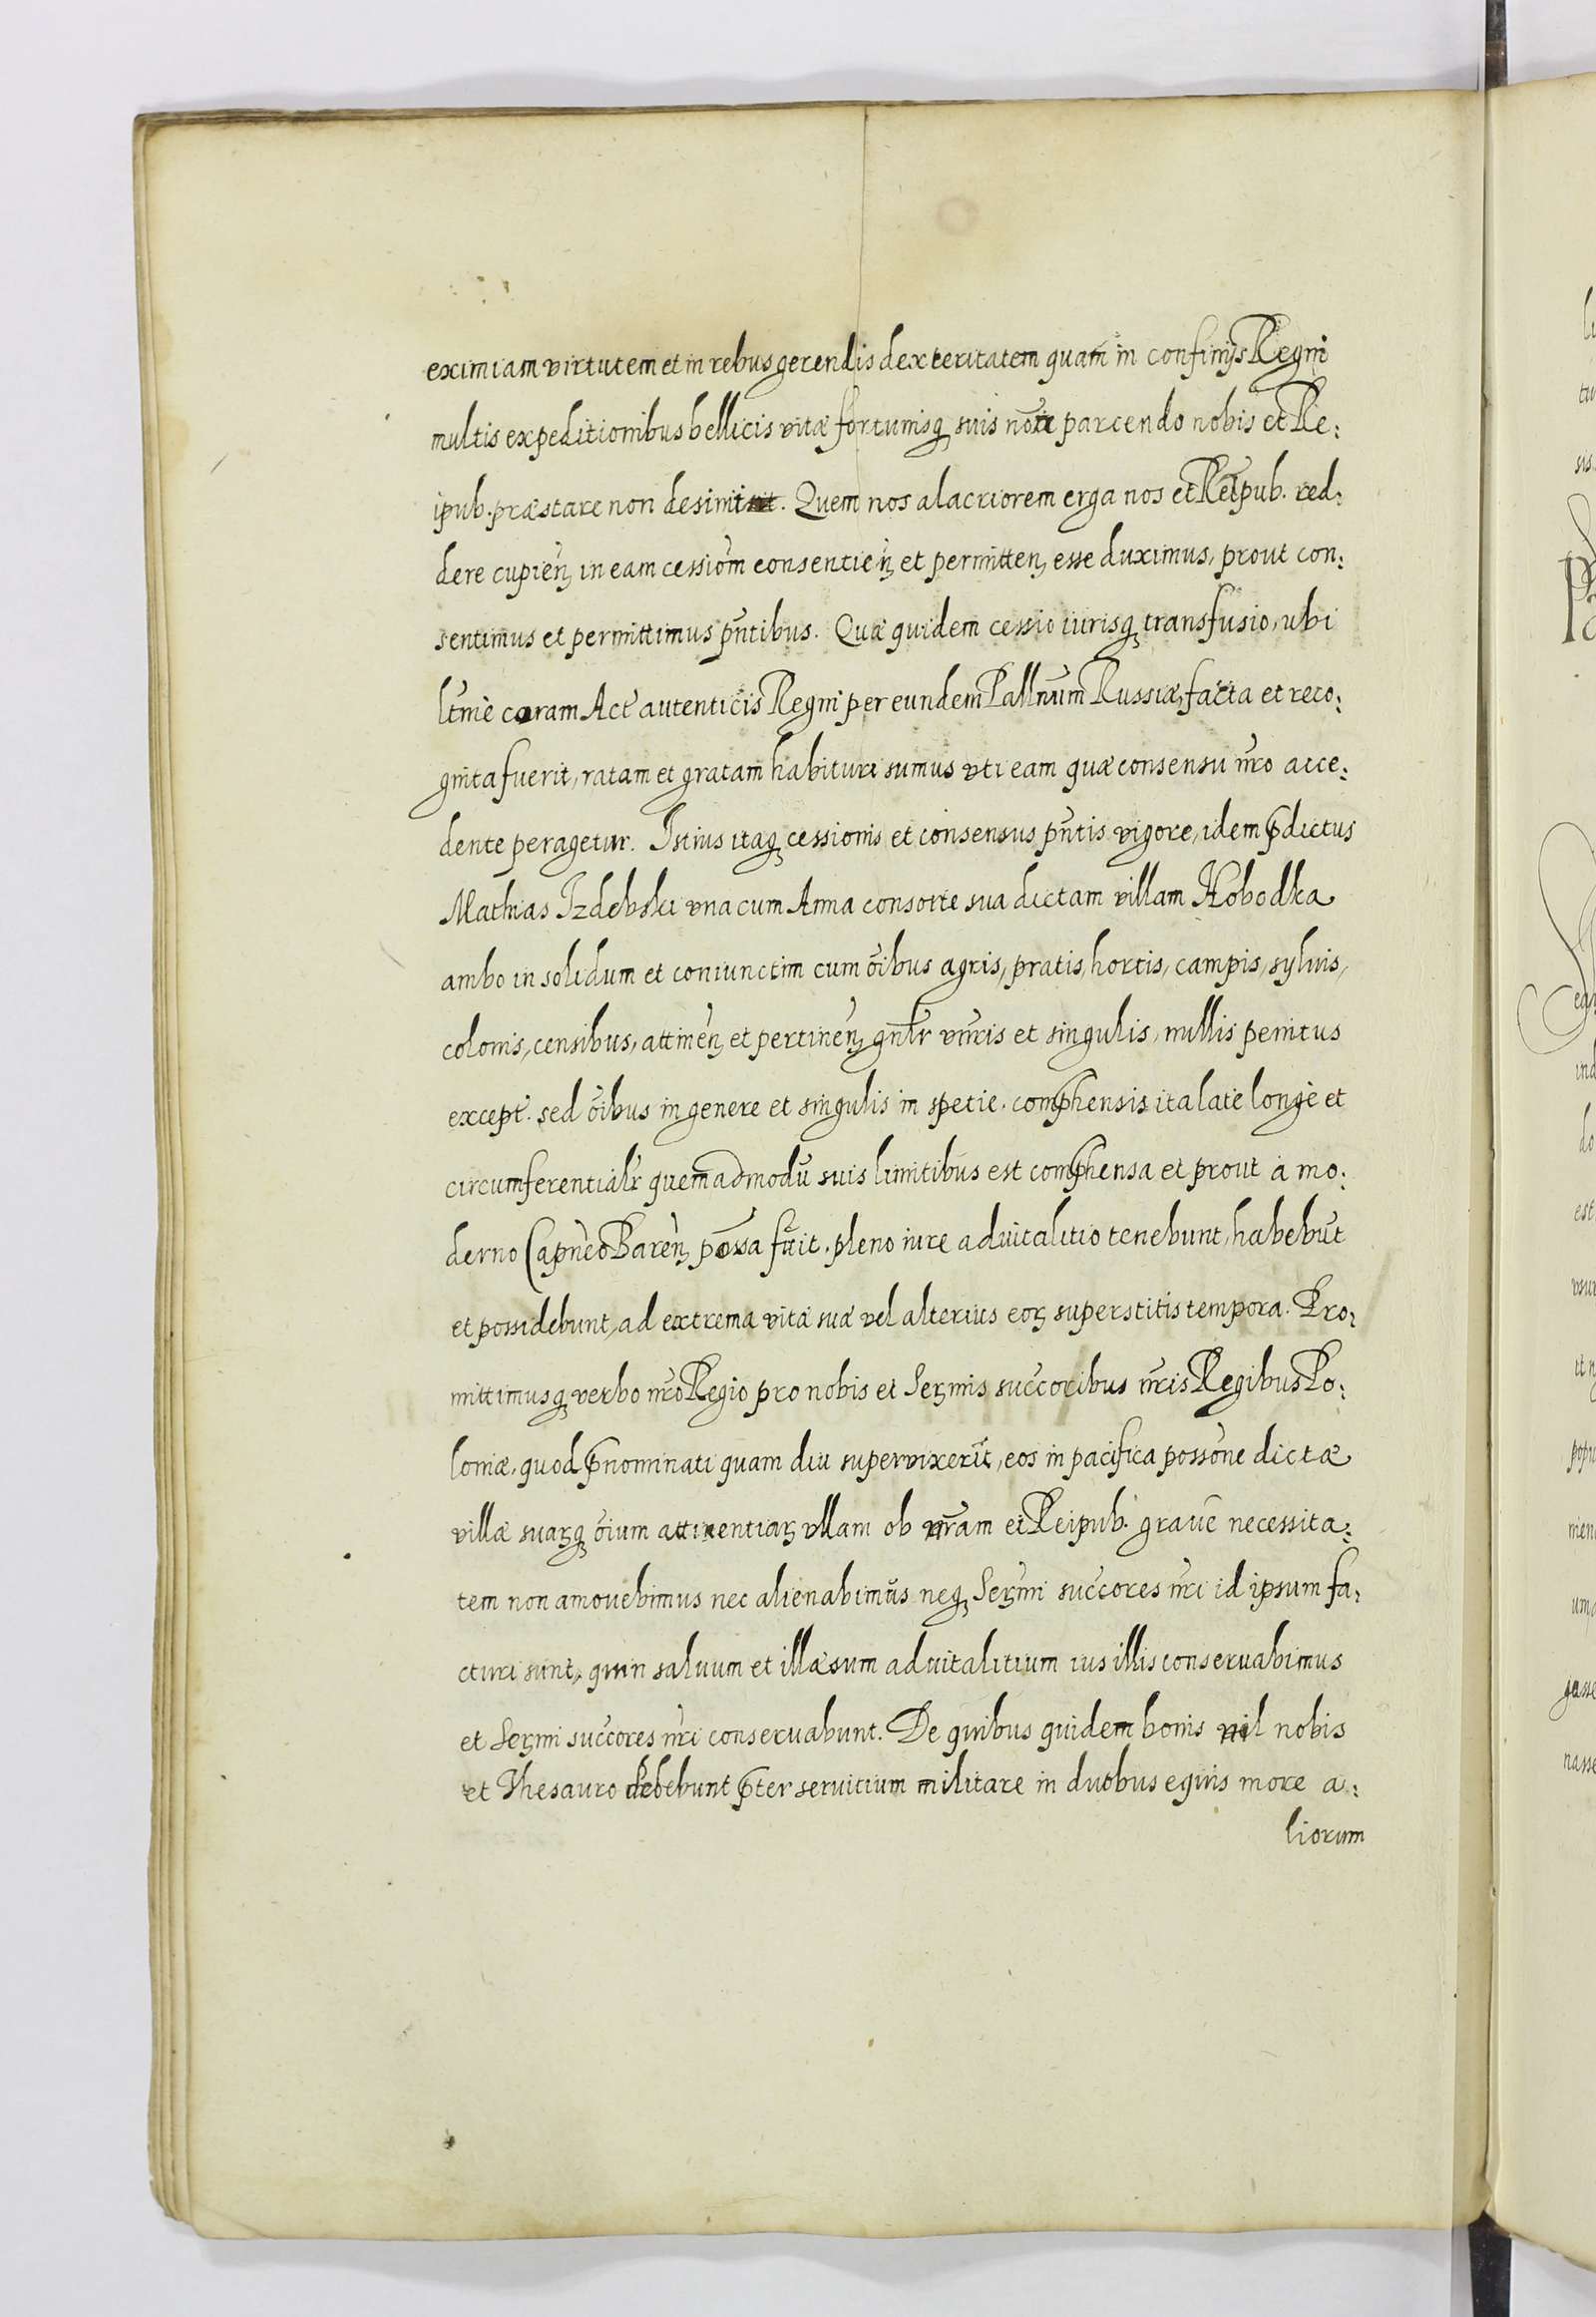 eximiam virtutem et in rebus gerendis dexteritatem quam in confinijs Regni
multis expeditionibus bellicis vitæ fortunisq suis parcendo nobis et Re:
ipub. præstare non desinit. Quem nos alacriorem erga nos et Reipub. red:
dere cupien, in eam cessiõm consentien, et permitten, esse duximus, prout con:
sentimus et permittimus pñtibus. Quæ quidem cessio iurisq transfusio, ubi
ltmè coram Act autenticis Regni per eundem Pallnum Russiæ facta et reco:
gnita fuerit, ratam et gratam habituri sumus vti eam quæ consensu nro acce:
dente peragetur. Istius itaq cessionis et consensus pñtis vigore, idem pdictus
Mathias Izdebski vna cum Anna consorte sua dictam villam Hobodka
ambo in solidum et coniunctim cum oibus agris, pratis, hortis, campis, sylvis,
colonis, censibus, attinen, et pertinen, gnlr vnīris et singulis, nullis penitus
except. sed oibus in genere et singulis in spetie. comphensis ita latè longè et
circumferentialr quemadmodũ suis limitibus est comphensa et prout à mo:
derno Capneo Baren, possa fũit. pleno iure aduitalitio tenebunt, habebũt
et possidebunt, ad extrema vitæ suæ vel alterius eoꝝ superstitis tempora. Pro:
mittimusq verbo nro Regio pro nobis et Serꝫmis succoribus nris Regibus Po:
loniæ. quod pnominati quam diu supervixerīt, eos in pacifica possone dictæ
villæ suaꝝq oium attinentiaꝝ ullam ob nram et Reipub. grauē necessita:
tem non amouebimus nec alienabimus neq Serꝫmi succores nri id ipsum fa:
cturi sunt, quin saluum et illæsum aduitalitium ius illis conseruabimus
et Serꝫmi succores nri conseruabunt. De quibus quidem bonis nil nobis
et Thesauro debebunt pter seruitium militare in duobus equis more a:
liorum